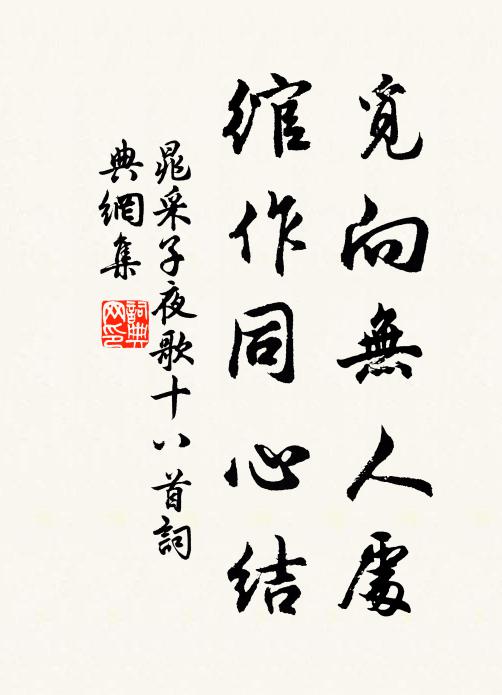 覓向無人處
綰作同心結
晁采子夜歌十八首詞
典網集
詞典
网印